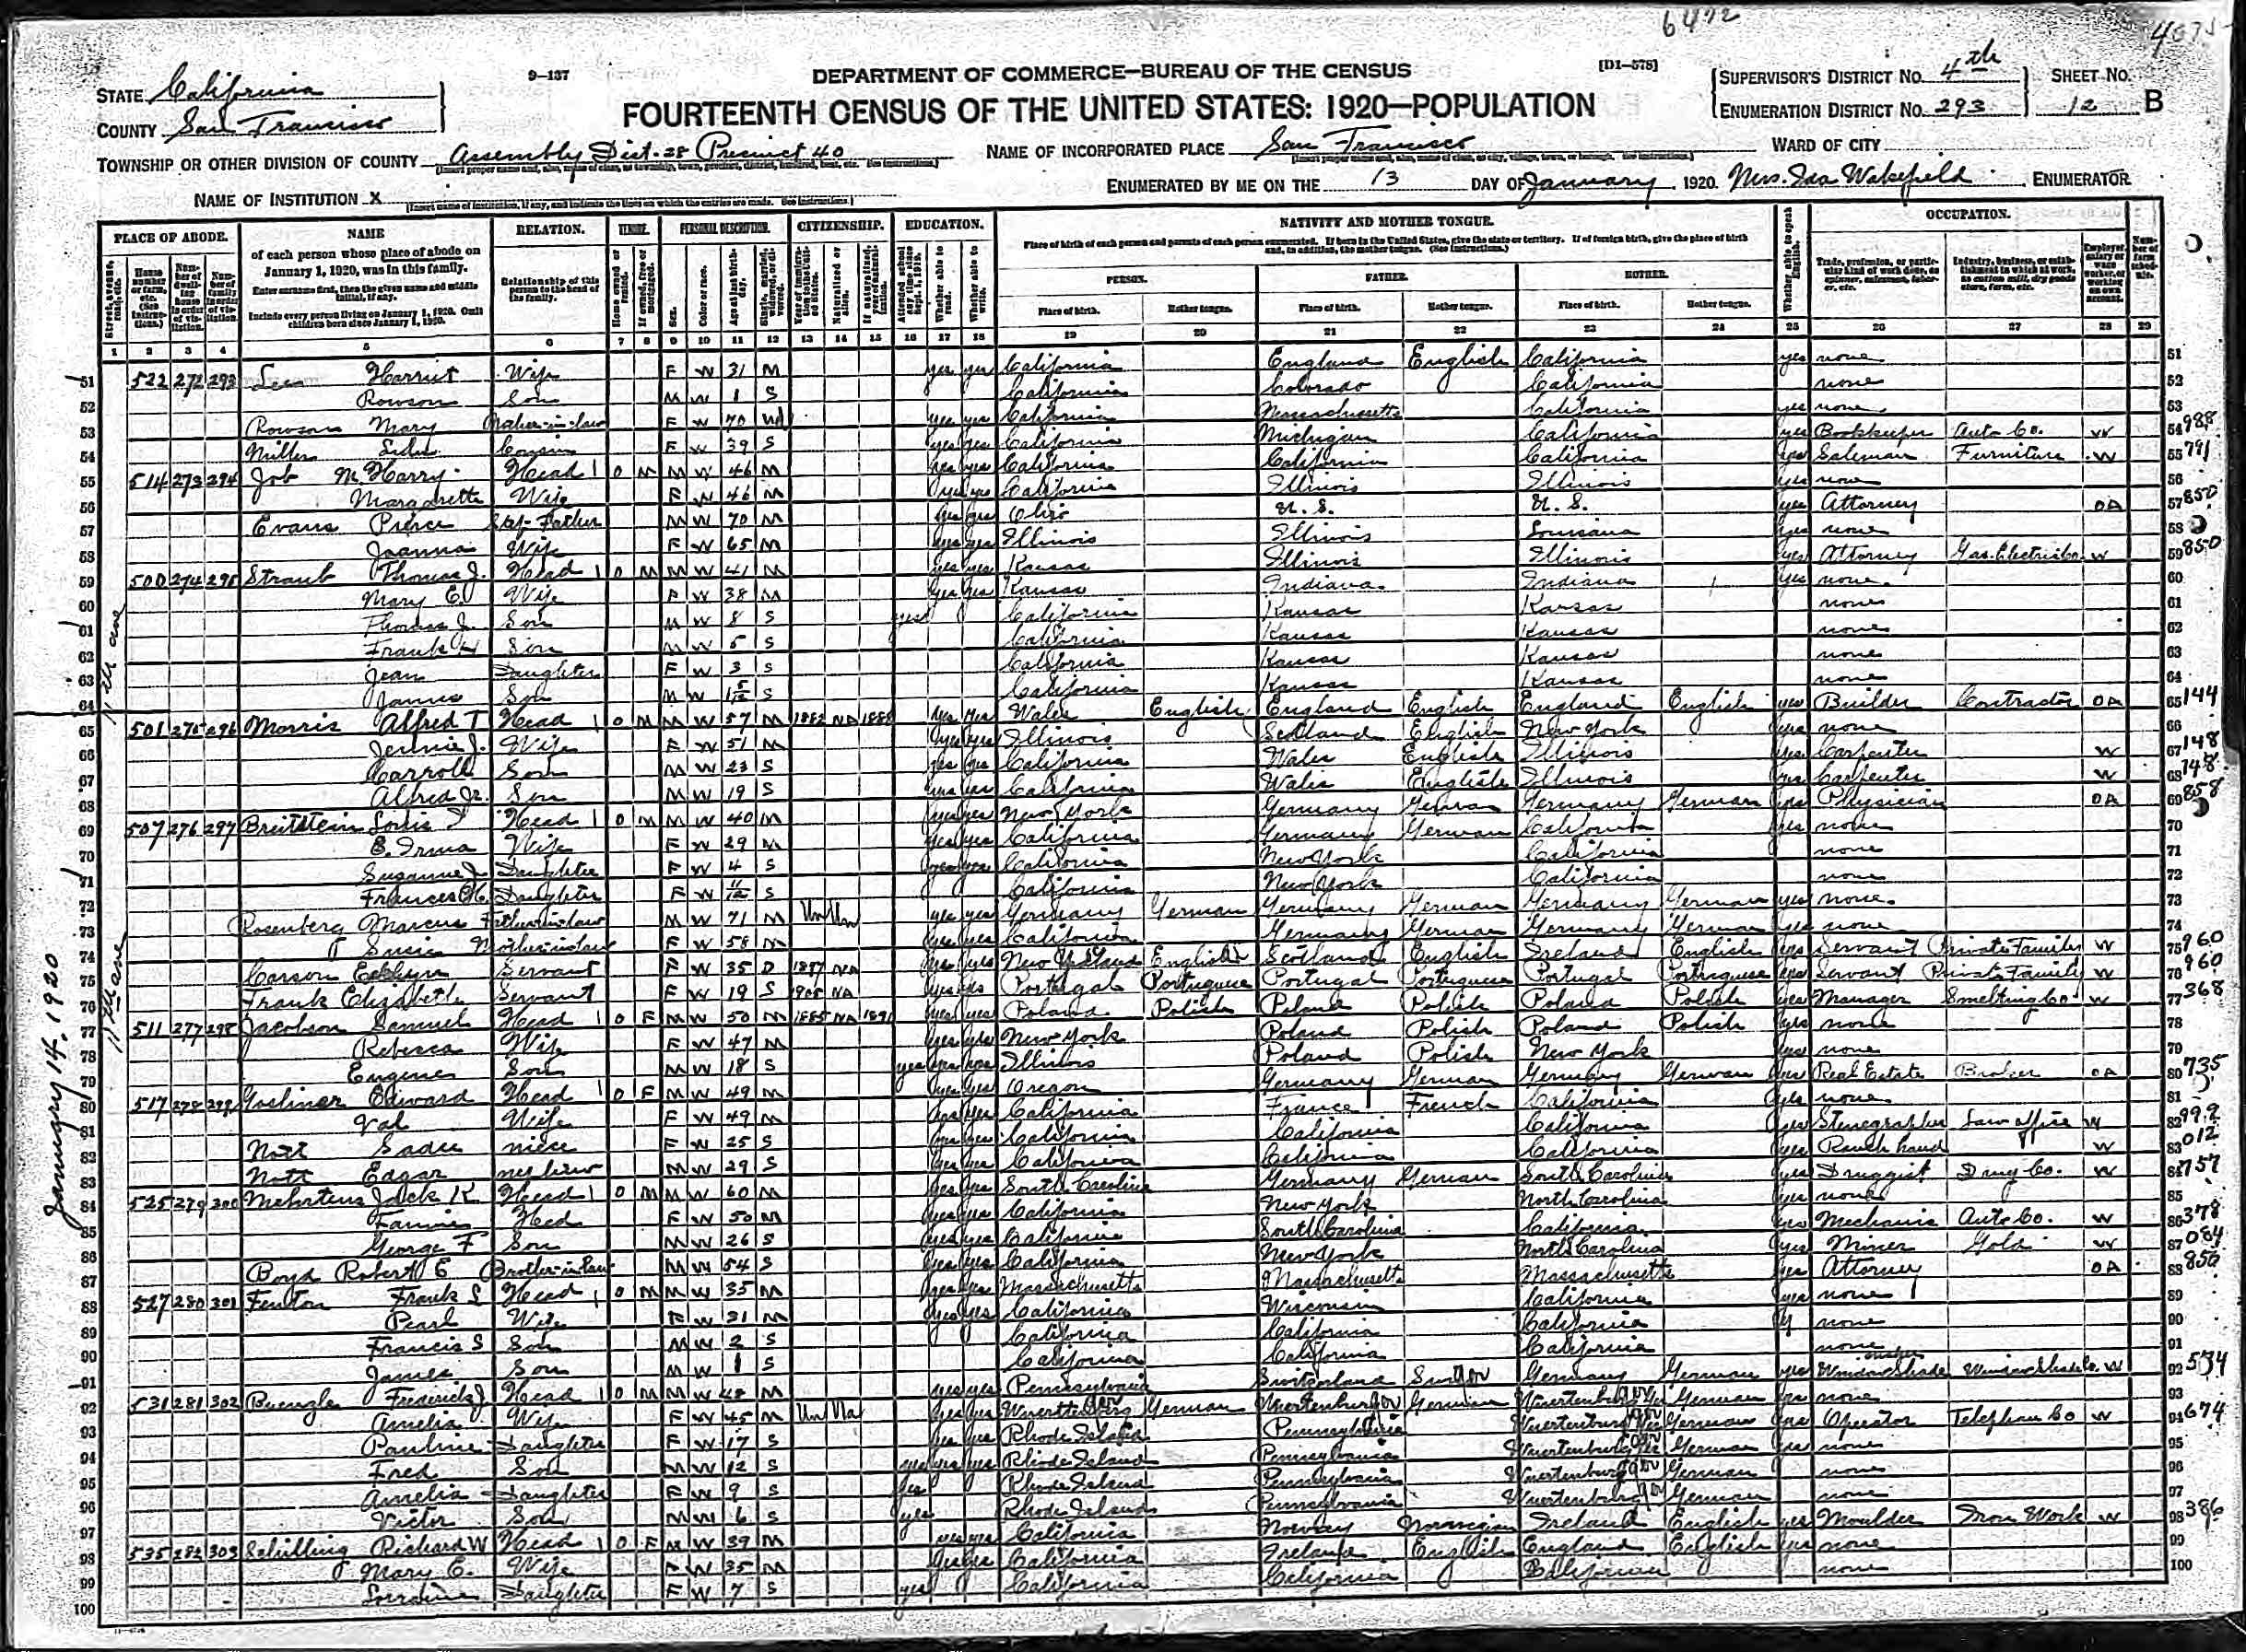 6472
4075
STATE California
COUNTY San Francisco
9-137
DEPARTMENT OF COMMERCE—BUREAU OF THE CENSUS
[D1-578]
FOURTEENTH CENSUS OF THE UNITED STATES: 1920—POPULATION
SUPERVISOR'S DISTRICT NO. 4th
ENUMERATION DISTRICT NO. 293
SHEET NO. 12 B
TOWNSHIP OR OTHER DIVISION OF COUNTY Assembly Dist. 28 Precinct 40
NAME OF INCORPORATED PLACE San Francisco
WARD OF CITY
NAME OF INSTITUTION X
ENUMERATED BY ME ON THE 13 DAY OF January, 1920. Mrs. Ida Wakefield, ENUMERATOR
PLACE OF ABODE. NAME RELATION. TENURE. PERSONAL DESCRIPTION. CITIZENSHIP. EDUCATION. NATIVITY AND MOTHER TONGUE. OCCUPATION.
of each person whose place of abode on January 1, 1920, was in this family.
Enter surname first, then the given name and middle initial, if any.
Include every person living on January 1, 1920. Omit children born since January 1, 1920.
Relationship of this person to the head of the family.
PERSON. FATHER. MOTHER.
Place of birth. Mother tongue. Place of birth. Mother tongue. Place of birth. Mother tongue.
1 2 3 4 5 6 7 8 9 10 11 12 13 14 15 16 17 18 19 20 21 22 23 24 25 26 27 28 29
51 522 272 293 Harriet Wife F W 31 M yes yes California England English California yes none
52 Rowson Son M W 1 S California Colorado California none
53 Rowson Mary Mother-in-law F W 70 Wd yes yes California Massachusetts California yes none
54 Miller Cousin F W 39 S yes yes California Michigan California yes Bookkeeper Auto Co. W 988
55 514 273 294 Job M. Harry Head 1 O M M W 46 M yes yes California California California yes Salesman Furniture W 791
56 Margarette Wife F W 46 M yes yes California Illinois Illinois yes none
57 Evans Pierce Step-Father M W 70 M yes yes Ohio U. S. U. S. yes Attorney OA 850
58 Joanna Wife F W 65 M yes yes Illinois Illinois Louisiana yes none
59 500 274 295 Straub Thomas J. Head 1 O M M W 41 M yes yes Kansas Illinois Illinois yes Attorney Gas. Electric Co. W 850
60 Mary E. Wife F W 38 M yes yes Kansas Indiana Indiana yes none
61 Thomas J. Son M W 8 S yes California Kansas Kansas none
62 Frank Son M W 5 S California Kansas Kansas none
63 Jean Daughter F W 3 S California Kansas Kansas none
64 James Son M W 1 5/12 S California Kansas Kansas none
65 501 275 296 Morris Alfred T Head 1 O M M W 57 M 1882 NA 1888 yes yes Wales English England English England English yes Builder Contractor OA 144
66 Jennie J. Wife F W 51 M yes yes Illinois Scotland English New York yes none
67 Carroll Son M W 23 S yes yes California Wales English Illinois yes Carpenter W 148
68 Alfred Jr. Son M W 19 S yes yes California Wales English Illinois yes Carpenter W 148
69 507 276 297 Breitstein Louis I Head 1 O M M W 40 M yes yes New York Germany German Germany German yes Physician OA 858
70 E. Irma Wife F W 29 M yes yes California Germany German California yes none
71 Susanne J Daughter F W 4 S California New York California none
72 Frances Daughter F W 11/12 S California New York California none
73 Rosenberg Marcus Father-in-law M W 71 M Un Un yes yes Germany German Germany German Germany German yes none
74 Susie Mother-in-law F W 58 M yes yes California Germany German Germany German yes none
75 Carson Servant F W 35 D 1897 NA yes yes New Zealand English Scotland English Ireland English yes Servant Private Family W 960
76 Frank Elizabeth Servant F W 19 S 1905 NA yes yes Portugal Portuguese Portugal Portuguese Portugal Portuguese yes Servant Private Family W 960
77 511 277 298 Jacobson Samuel Head 1 O F M W 50 M 1885 NA 1890 yes yes Poland Polish Poland Polish Poland Polish yes Manager Smelting Co. W 368
78 Rebecca Wife F W 47 M yes yes New York Poland Polish Poland Polish yes none
79 Eugene Son M W 18 S yes yes yes Illinois Poland Polish New York yes none
80 517 278 299 Gosliner Edward Head 1 O F M W 49 M yes yes Oregon Germany German Germany German yes Real Estate Broker OA 735
81 Val Wife F W 49 M yes yes California France French California yes none
82 Nott Sadie niece F W 25 S yes yes California California California yes Stenographer Law office W 999
83 Nott Edgar nephew M W 29 S yes yes California California California yes Ranch hand W 012
84 525 279 300 Mehrtens Jack K Head 1 O M M W 60 M yes yes South Carolina Germany German South Carolina yes Druggist Drug Co. W 757
85 Fannie Head F W 50 M yes yes California New York North Carolina yes none
86 George F Son M W 26 S yes yes California South Carolina California yes Mechanic Auto Co. W 378
87 Boyd Robert E Brother-in-law M W 54 S yes yes California New York North Carolina yes Miner Gold W 084
88 527 280 301 Fenton Frank S Head 1 O M M W 35 M yes yes Massachusetts Massachusetts Massachusetts yes Attorney OA 850
89 Pearl Wife F W 31 M yes yes California Wisconsin California yes none
90 Francis S Son M W 2 S California California California none
91 James Son M W 1 S California California California none
92 531 281 302 Frederick J Head 1 O M M W 48 M yes yes Pennsylvania Switzerland Germany German yes Window Shade W 534
93 Amelia Wife F W 45 M Un Na yes yes German German German yes none
94 Pauline Daughter F W 17 S yes yes Rhode Island Pennsylvania German yes Operator Telephone Co W 674
95 Fred Son M W 12 S yes yes yes Rhode Island Pennsylvania German yes none
96 Amelia Daughter F W 9 S yes Rhode Island Pennsylvania German none
97 Victor Son M W 6 S yes Rhode Island Pennsylvania German none
98 535 282 303 Schilling Richard W Head 1 O F M W 39 M yes yes California Norway Norwegian Ireland English yes Moulder Iron Work W 386
99 Mary E. Wife F W 35 M yes yes California Ireland English England English yes none
100 Lorraine Daughter F W 7 S yes California California California none
11th ave
11th ave
January 14, 1920